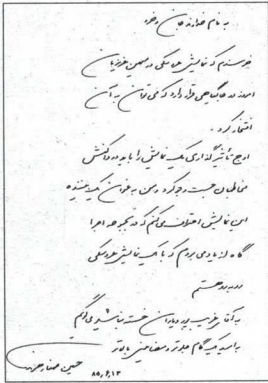 به نام خداوند جان و خرد
خرسندم که نمایش عروسکی در سرزمین عزیزمان
امروز در جایگاهی قرار دارد که می‌توان به آن
افتخار کرد.
اوج تأثیرگذاری یک نمایش را باید در واکنش
مخاطبان جست و جو کرد و من به عنوان یک بیننده
این نمایش اعتراف می‌کنم که در نتیجه اجرا
گاه از یاد می‌بردم که با یک نمایش عروسکی
روبرو هستم
به آقای غریب‌پور و یاران خسته نباشید می‌گویم
به امید گام‌های بلندتر و مضامین
حسین
۸۵,۶,۱۳